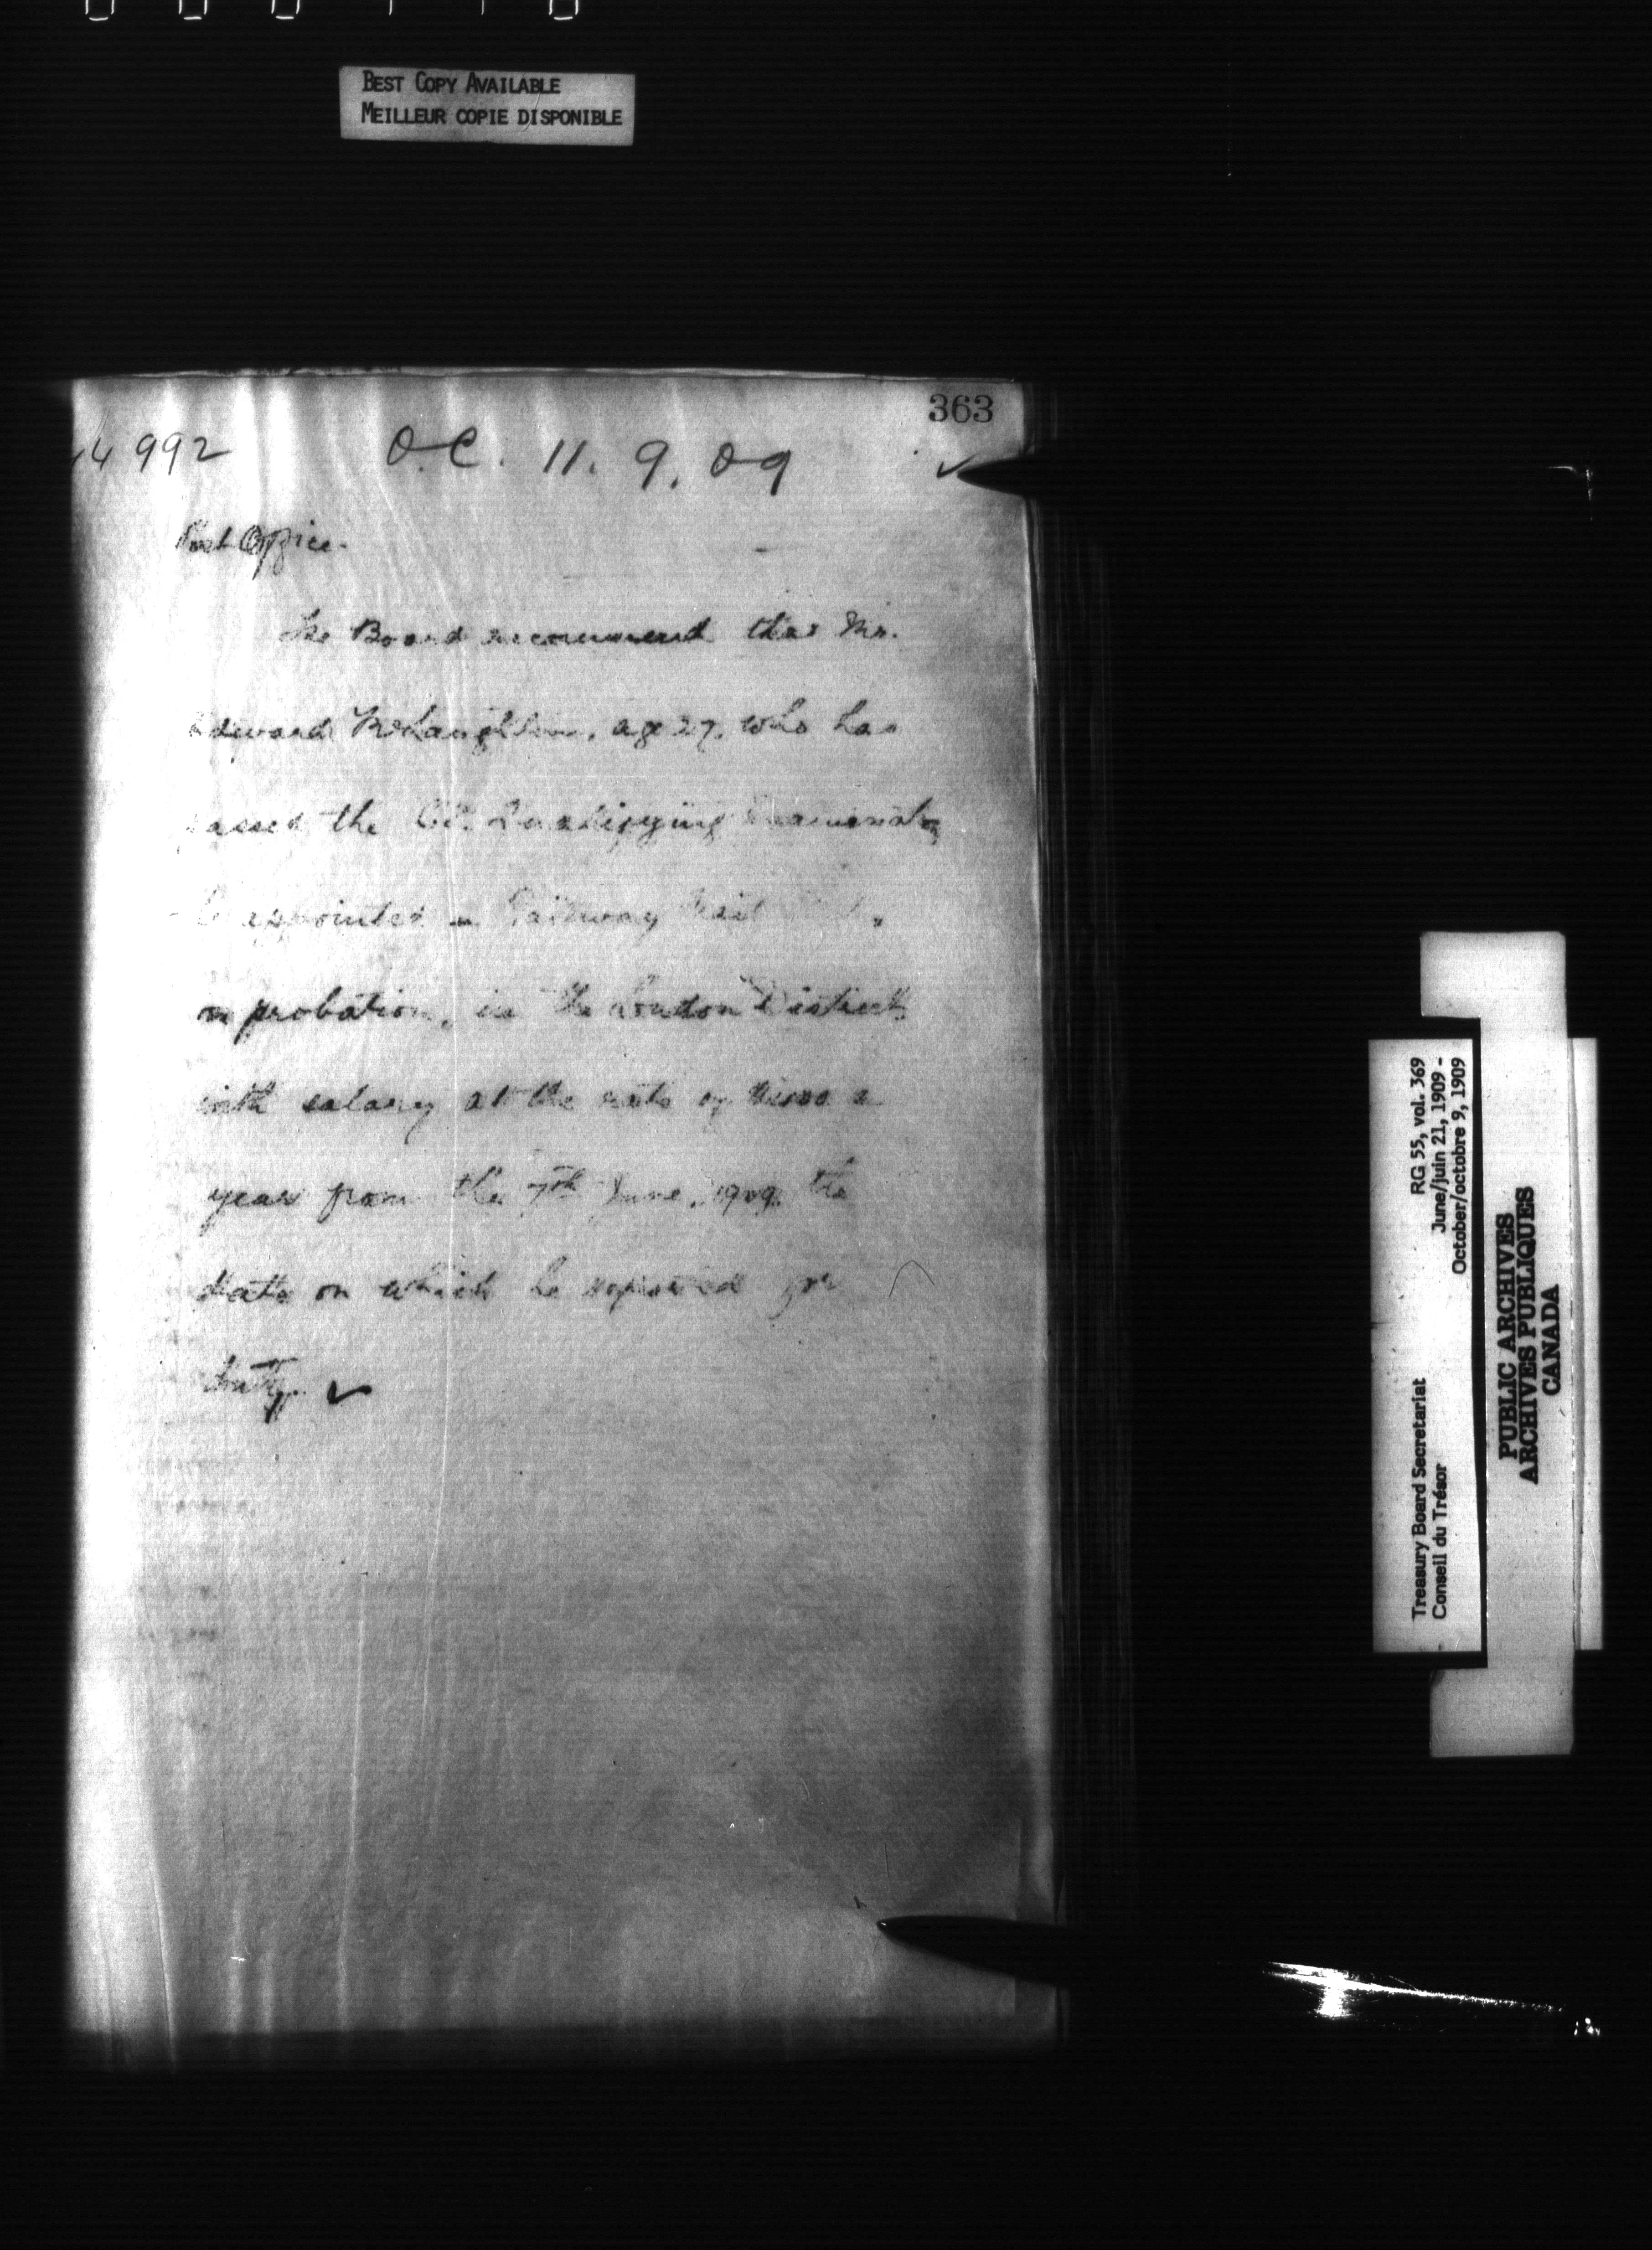 BEST COPY AVAILABLE
MEILLEUR COPIE DISPONIBLE
363
14992 O.C. 11. 9. 09 ✓
Post Office.
The Board recommend that Mr.
Edward McLaughlin, age 27, who has
passed the Qualifying Examination
be appointed a Railway Mail
on probation, in the London District
with salary at the rate of a
year from the 7th June, 1909, the
date on which he reported for
duty. ✓
RG 55, vol. 369
June/juin 21, 1909 -
October/octobre 9, 1909
Treasury Board Secretariat
Conseil du Trésor
PUBLIC ARCHIVES
ARCHIVES PUBLIQUES
CANADA